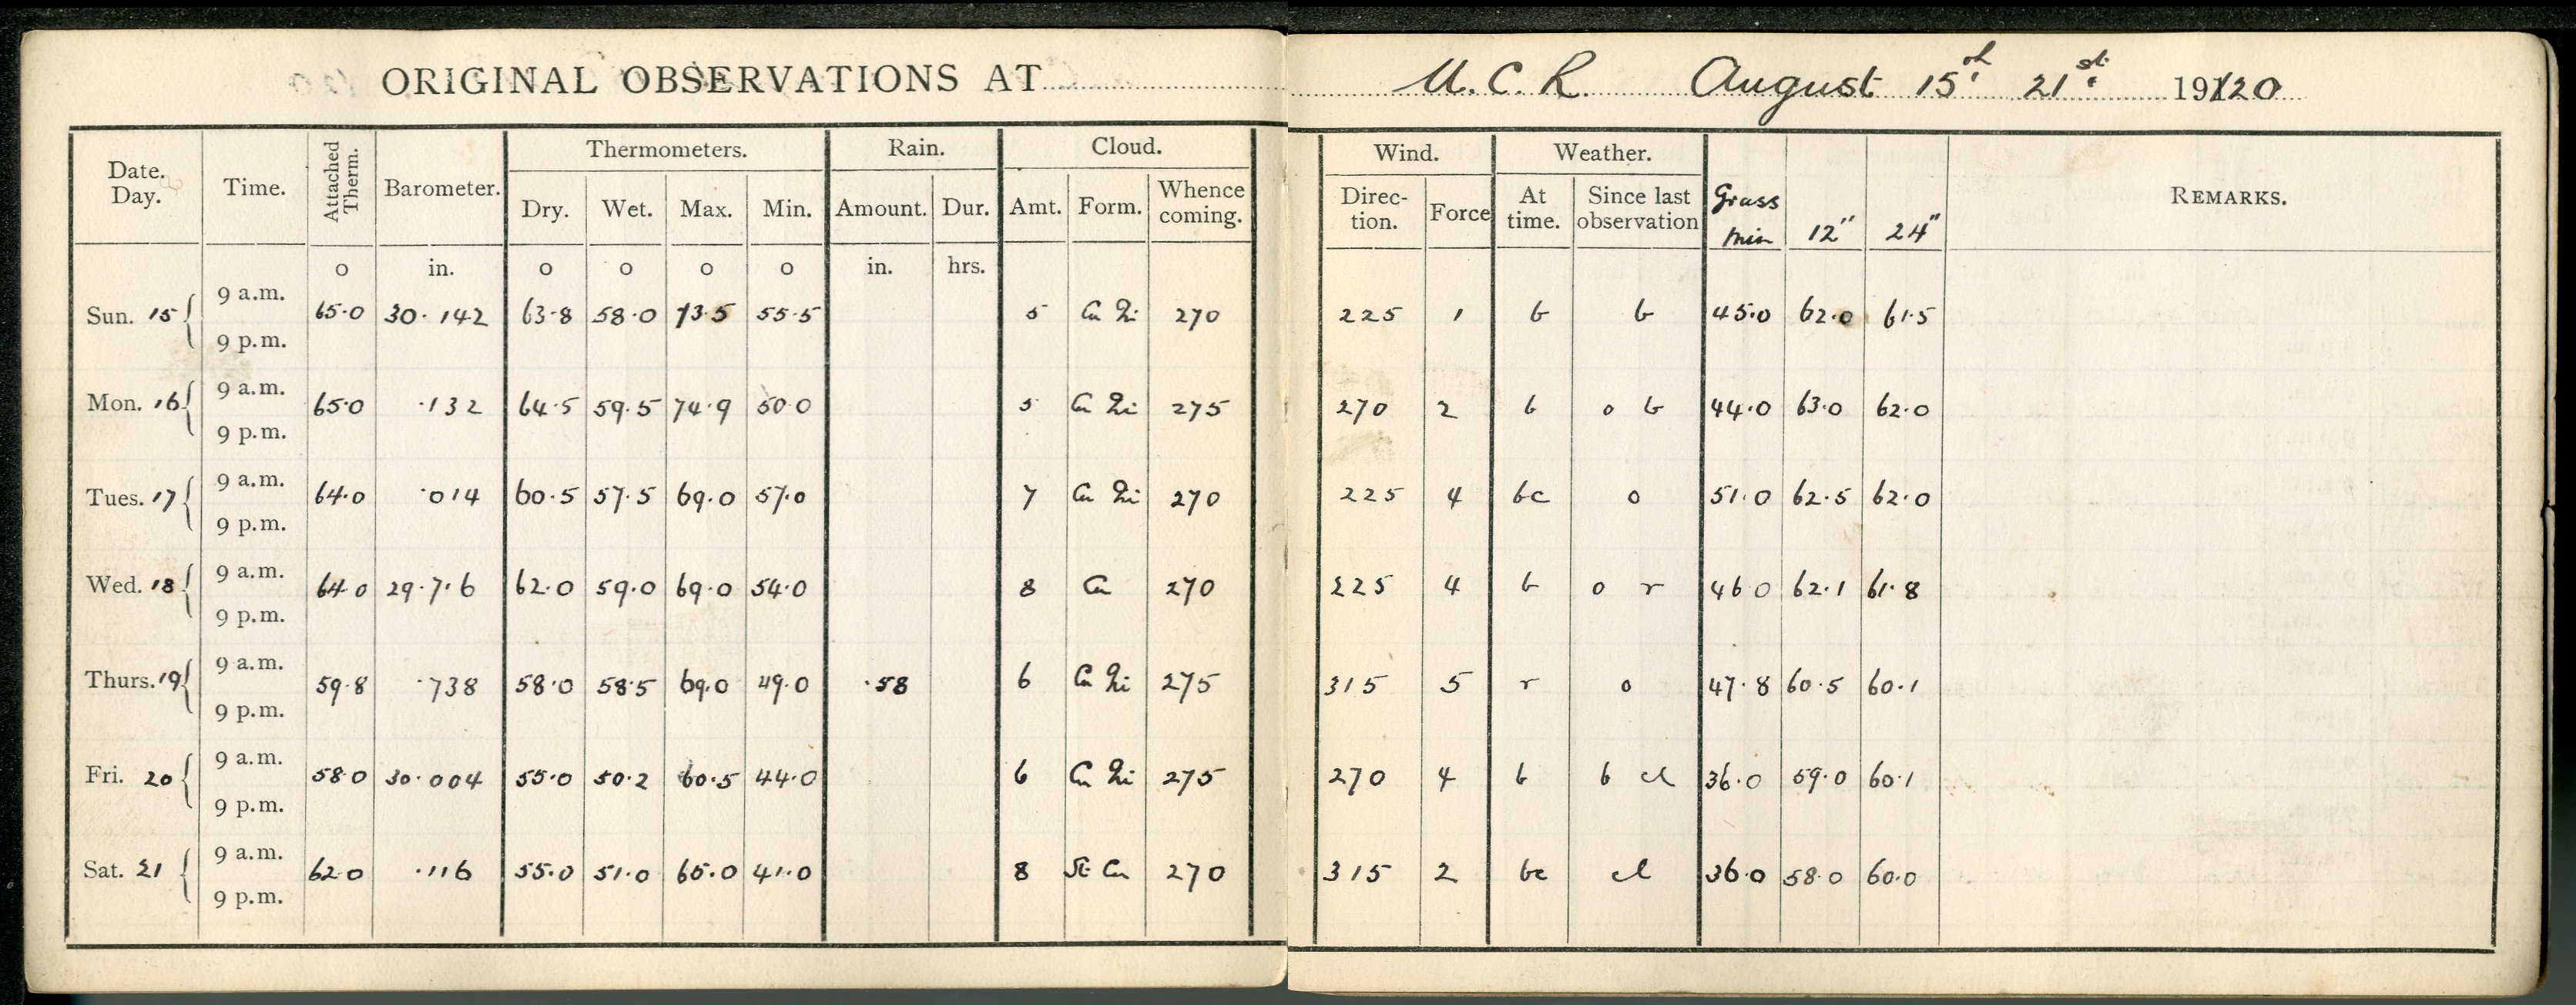 ORIGINAL OBSERVATIONS AT U.C.R. August 15th 21st 1920
Date. Day. Time. Attached Therm. Barometer. Thermometers. Rain. Cloud. Wind. Weather. Grass min 12" 24" REMARKS.
Dry. Wet. Max. Min. Amount. Dur. Amt. Form. Whence coming. Direction. Force At time. Since last observation
o in. o o o o in. hrs.
9 a.m.
Sun. 15 65.0 30.142 63.8 58.0 73.5 55.5 5 Cu Ni 270 225 1 b b 45.0 62.0 61.5
9 p.m.
9 a.m.
Mon. 16 65.0 .132 64.5 59.5 74.9 50.0 5 Cu Ni 275 270 2 b o b 44.0 63.0 62.0
9 p.m.
9 a.m.
Tues. 17 64.0 .014 60.5 57.5 69.0 57.0 7 Cu Ni 270 225 4 bc o 51.0 62.5 62.0
9 p.m.
9 a.m.
Wed. 18 64.0 29.716 62.0 59.0 69.0 54.0 8 Cu 270 225 4 b o r 46.0 62.1 61.8
9 p.m.
9 a.m.
Thurs. 19 59.8 .738 58.0 58.5 69.0 49.0 .58 6 Cu Ni 275 315 5 r o 47.8 60.5 60.1
9 p.m.
9 a.m.
Fri. 20 58.0 30.004 55.0 50.2 60.5 44.0 6 Cu Ni 275 270 4 b b cl 36.0 59.0 60.1
9 p.m.
9 a.m.
Sat. 21 62.0 .116 55.0 51.0 65.0 41.0 8 St Cu 270 315 2 bc cl 36.0 58.0 60.0
9 p.m.